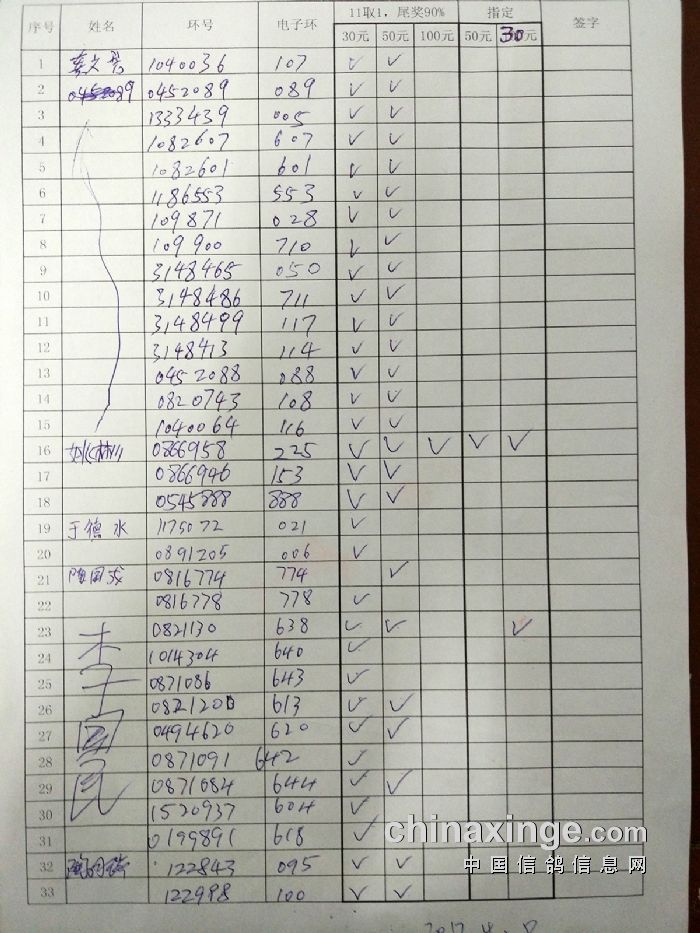 序号 姓名 环号 电子环 11取1，尾奖90% 指定 签字
30元 50元 100元 50元 30元
1 1040036 107 ✓ ✓
2 0452089 089 ✓ ✓
3 1333439 005 ✓ ✓
4 1082607 607 ✓ ✓
5 1082601 601 ✓ ✓
6 1186553 553 ✓ ✓
7 109871 028 ✓ ✓
8 109900 710 ✓ ✓
9 3148465 050 ✓ ✓
10 3148486 711 ✓ ✓
11 3148499 117 ✓ ✓
12 3148413 114 ✓ ✓
13 0452088 088 ✓ ✓
14 0820743 108 ✓ ✓
15 1040064 116 ✓ ✓
16 0866958 225 ✓ ✓ ✓ ✓ ✓
17 0866946 153 ✓ ✓
18 0545888 888 ✓ ✓
19 于德水 1175072 021 ✓
20 0891205 006 ✓
21 0816774 774 ✓
22 0816778 778 ✓
23 李子国民 0821130 638 ✓ ✓ ✓
24 1014304 640 ✓
25 0871086 643 ✓
26 0821200 613 ✓ ✓
27 0494620 620 ✓ ✓
28 0871091 642 ✓
29 0871084 644 ✓ ✓
30 1520937 604 ✓
31 0199891 618 ✓
32 122843 095 ✓ ✓
33 122998 100 ✓ ✓
chinaxinge.com
中国信鸽信息网